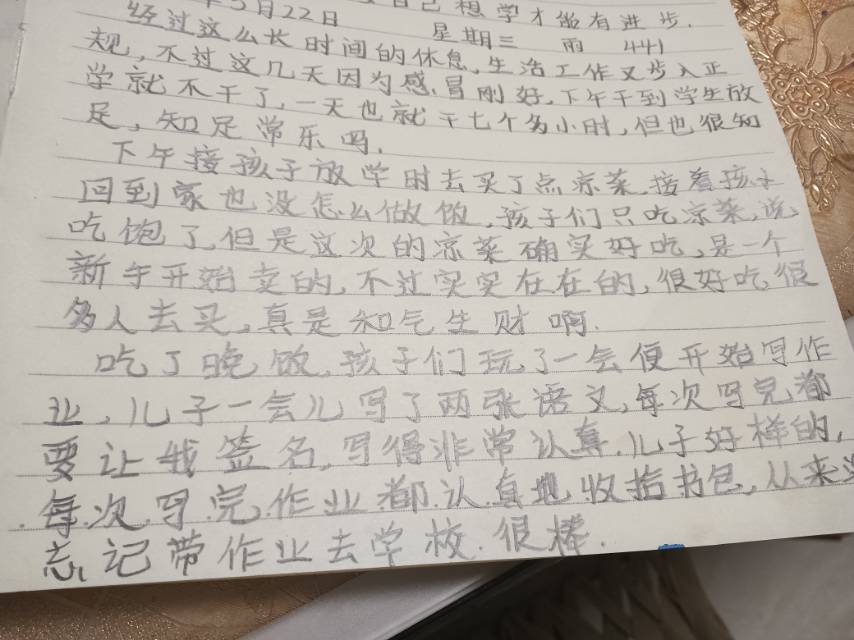 自己想学才能有进步.
年5月22日 星期三 雨 441
经过这么长时间的休息,生活工作又步入正
规,不过这几天因为感冒刚好,下午干到学生放
学就不干了,一天也就干七个多小时,但也很知
足,知足常乐吗.
下午接孩子放学时去买了点凉菜,接着孩子
回到家也没怎么做饭,孩子们只吃凉菜,说
吃饱了,但是这次的凉菜确实好吃,是一个
新手开始卖的,不过实实在在的,很好吃很
多人去买,真是和气生财啊.
吃了晚饭,孩子们玩了一会便开始写作
业,儿子一会儿写了两张语文,每次写完都
要让我签名,写得非常认真.儿子好样的,
每次写完作业都认真地收拾书包,从来没
忘记带作业去学校.很棒.